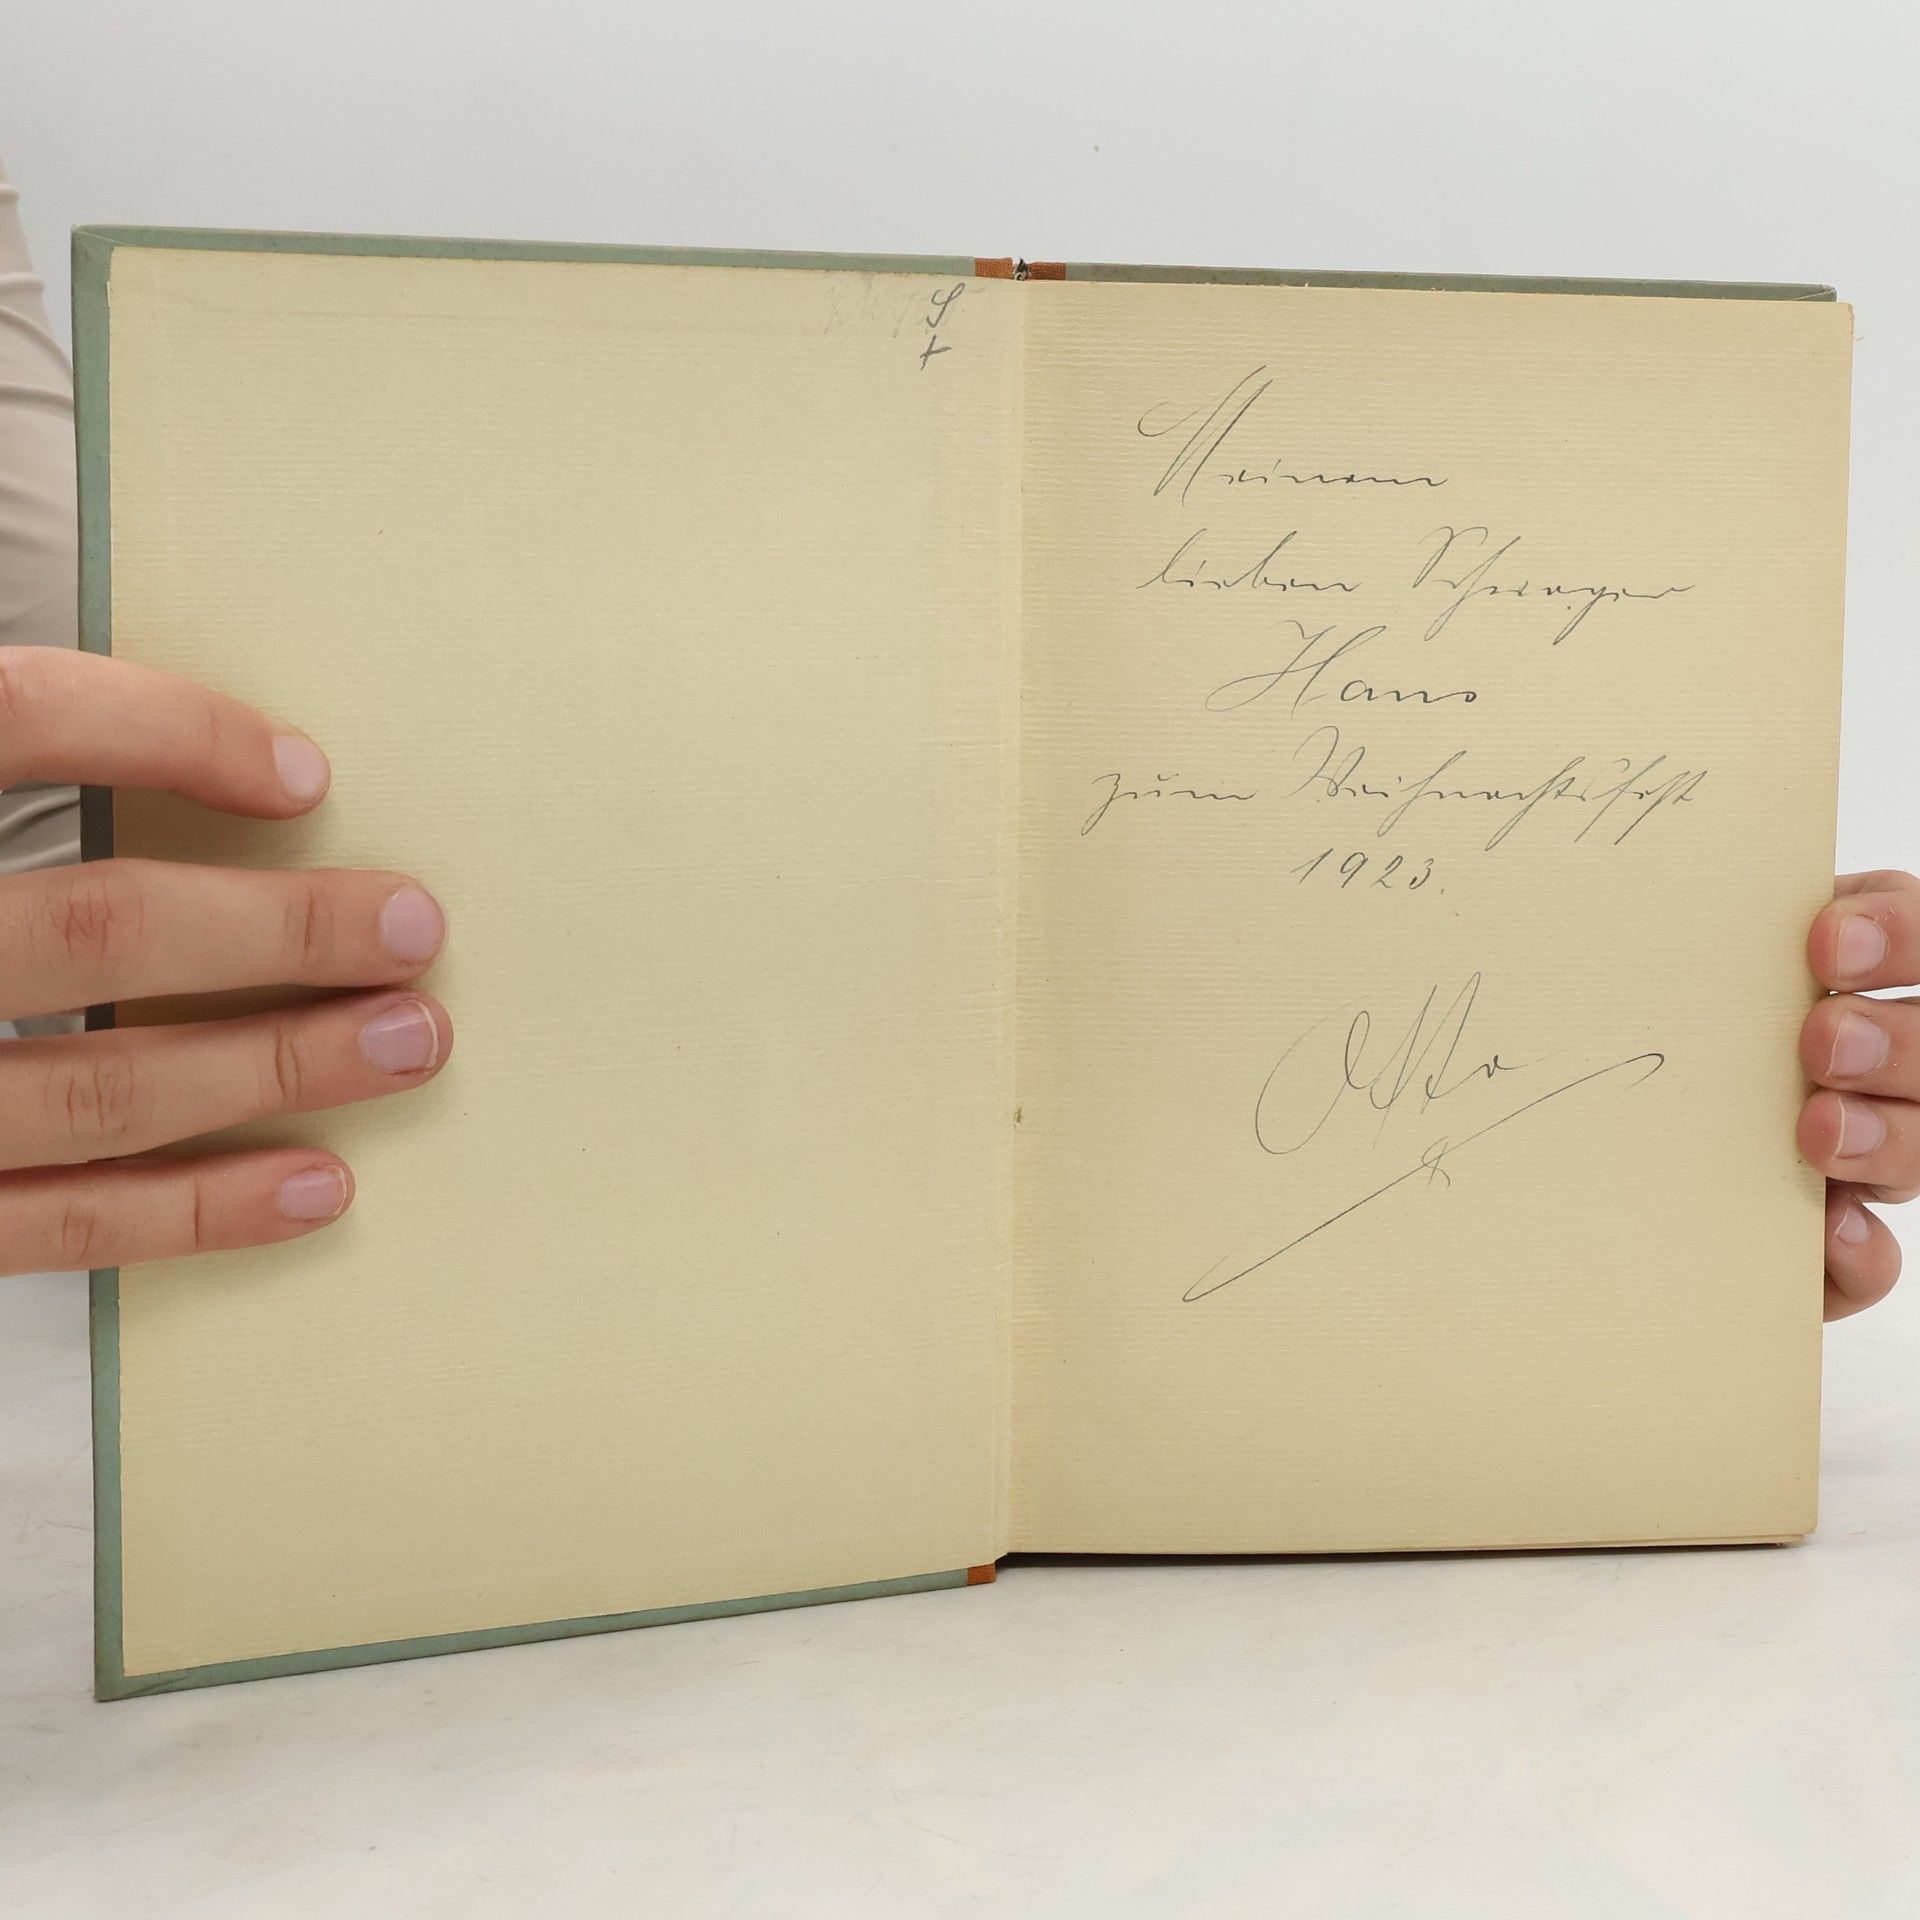 Meinem
lieben Schwager
Hans
zum Weihnachtsfest
1923.
Otto